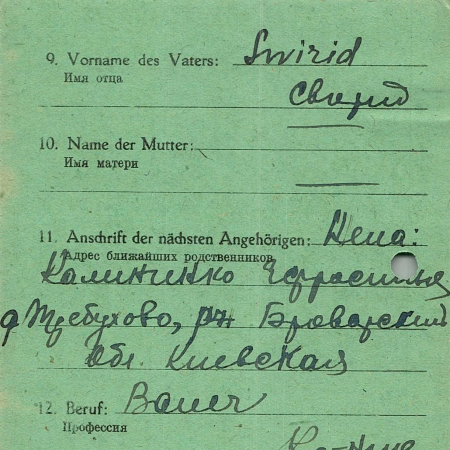 9. Vorname des Vaters: Swirid
Имя отца
Свирид
10. Name der Mutter:
Имя матери
11. Anschrift der nächsten Angehörigen: Жена:
Адрес ближайших родственников
Калиниченко Ефросинья
д Требухово, рн Броварский
обл. Киевская
12. Beruf: Bauer
Профессия